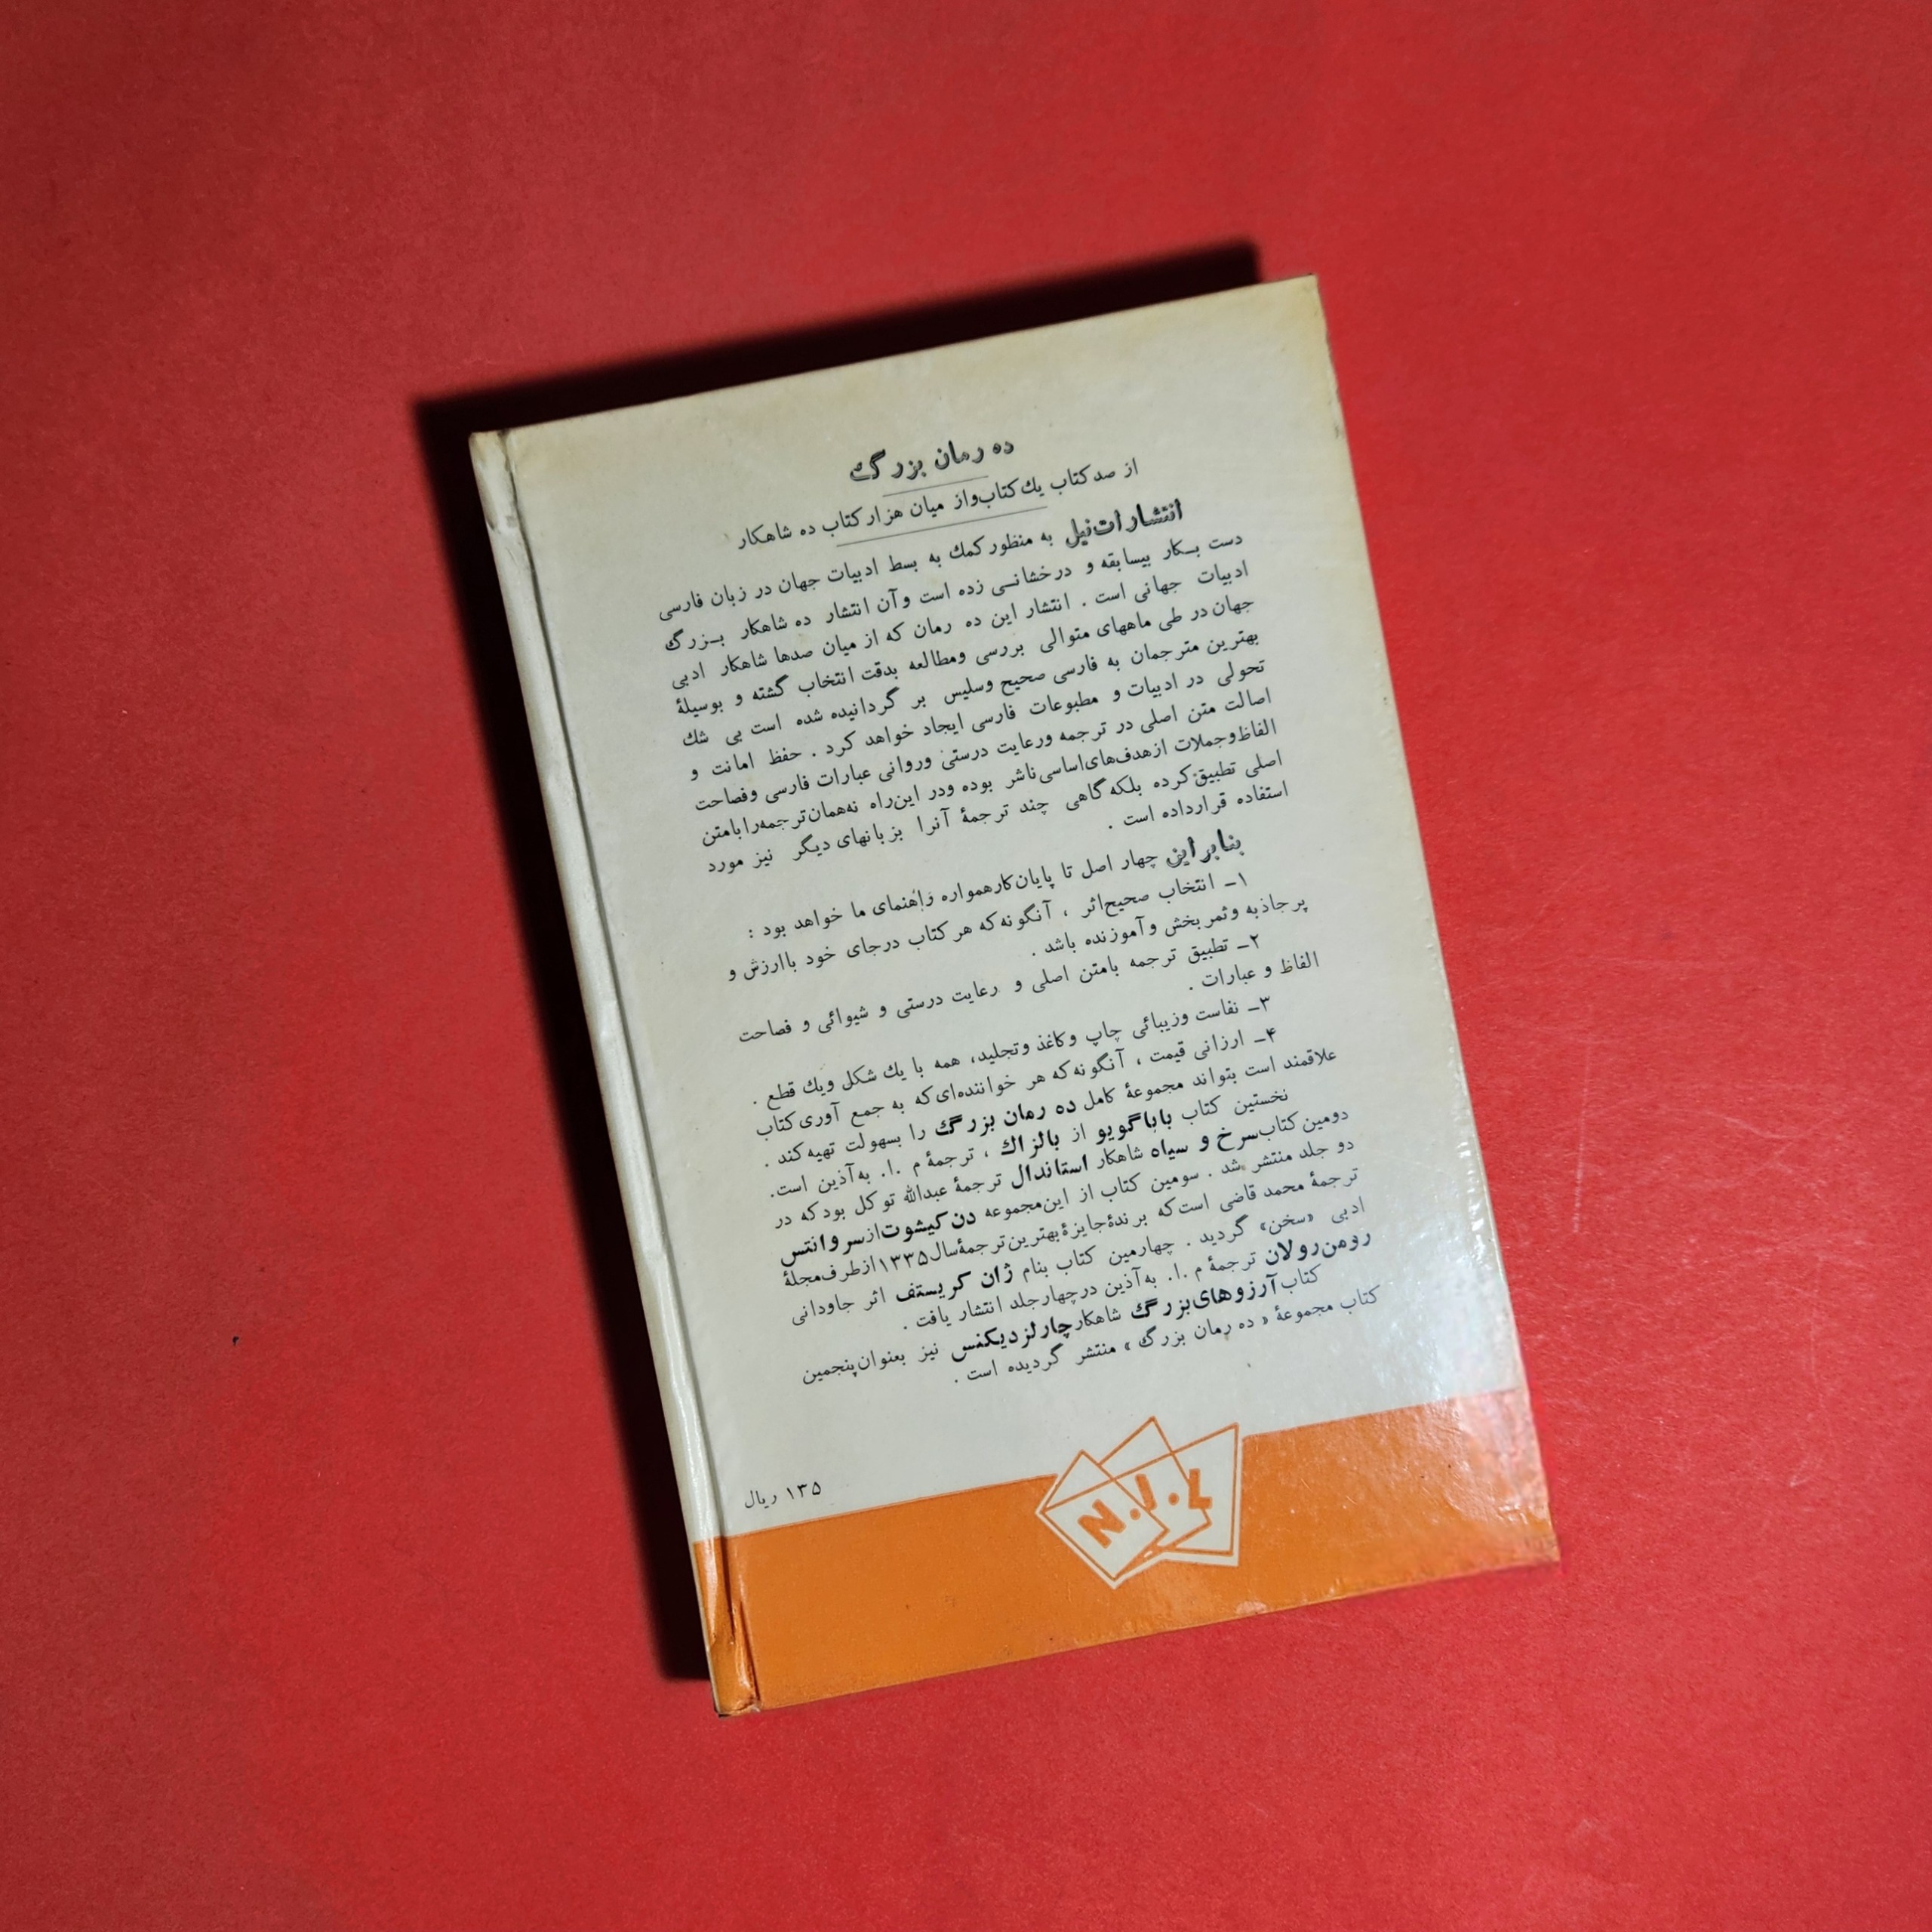 ده رمان بزرگ
از صد کتاب یك کتاب و از میان هزار کتاب ده شاهکار
انتشارات نیل به منظور کمك به بسط ادبیات جهان در زبان فارسی
دست بـکار بیسابقه و درخشانـی زده است و آن انتشار ده شاهکار بـزرگ
ادبیات جهانی است . انتشار این ده رمان که از میان صدها شاهکار ادبی
جهان در طی ماههای متوالی بررسی ومطالعه بدقت انتخاب گشته و بوسیلهٔ
بهترین مترجمان به فارسی صحیح وسلیس بر گردانیده شده است بی شك
تحولی در ادبیات و مطبوعات فارسی ایجاد خواهد کرد . حفظ امانت و
اصالت متن اصلی در ترجمه ورعایت درستی وروانی عبارات فارسی وفصاحت
الفاظ وجملات ازهدف‌های‌اساسی‌ناشر بوده ودر این‌راه نه‌همان‌ترجمه‌را بامتن
اصلی تطبیق‌کرده بلکه گاهی چند ترجمهٔ آنرا بزبانهای دیگر نیز مورد
استفاده قرارداده است .
بنابراین چهار اصل تا پایان‌کارهمواره راهنمای ما خواهد بود :
۱ـ انتخاب صحیح‌اثر ، آنگونه‌که هر کتاب درجای خود باارزش و
پرجاذبه وثمربخش وآموزنده باشد .
۲ـ تطبیق ترجمه بامتن اصلی و رعایت درستی و شیوائی و فصاحت
الفاظ و عبارات .
۳ـ نفاست وزیبائی چاپ وکاغذ وتجلید، همه با یك شکل ویك قطع .
۴ـ ارزانی قیمت ، آنگونه‌که هر خواننده‌ای‌که به جمع آوری‌کتاب
علاقمند است بتواند مجموعهٔ کامل ده رمان بزرگ را بسهولت تهیه کند .
نخستین کتاب باباگوریو از بالزاك ، ترجمهٔ م .ا. به‌آذین است.
دومین‌کتاب‌سرخ و سیاه شاهکار استاندال ترجمهٔ عبدالله توکل بودکه در
دو جلد منتشر شد . سومین کتاب از این‌مجموعه دن کیشوت‌ازسروانتس
ترجمهٔ محمد قاضی است‌که برندهٔ‌جایزهٔ‌بهترین‌ترجمهٔ‌سال۱۳۳۵ازطرف‌مجلهٔ
ادبی «سخن» گردید . چهارمین کتاب بنام ژان کریستف اثر جاودانی
رومن‌رولان ترجمهٔ م .ا. به‌آذین درچهارجلد انتشار یافت .
کتاب‌آرزوهای‌بزرگ شاهکارچارلزدیکنس نیز بعنوان‌پنجمین
کتاب مجموعهٔ « ده رمان بزرگ » منتشر گردیده است .
۱۳۵ ریال
N.I.L